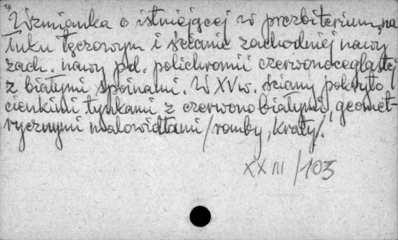 Wzmianka o istniejącej w prezbiterium, na
łuku tęczowym i ścianie zachodniej nawy
zach. nawy płd. polichromii czerwonoceglastej
z białymi spoinami. W XV w. ściany pokryto
cienkimi tynkami z czerwono białymi, geomet-
rycznymi malowidłami /romby, kraty/.
XXIII/103